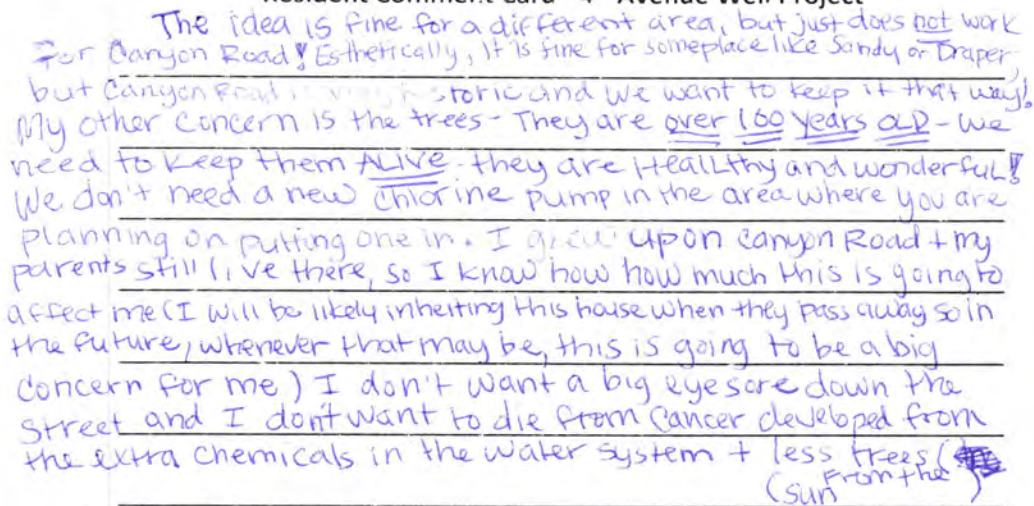 Resident Comment Card 4 Avenue Well Project
The idea is fine for a different area, but just does not work
For Canyon Road! Esthetically, It is fine for someplace like Sandy or Draper,
but Canyon Road is very historic and we want to keep it that way!
My other concern is the trees - They are over 100 years OLD - we
need to keep them ALIVE - they are HealLthy and wonderful!
We don't need a new chlorine pump in the area where you are
planning on putting one in. I grew up on Canyon Road + my
parents still live there, so I know how how much this is going to
affect me (I will be likely inheiting this house when they pass away so in
the future, whenever that may be, this is going to be a big
concern for me) I don't want a big eyesore down the
street and I don't want to die from Cancer developed from
the extra chemicals in the water system + less trees (
(sun from the )